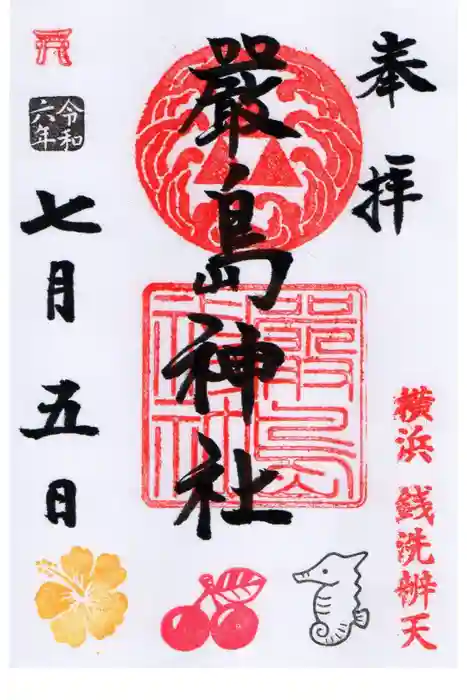 奉拝
嚴島神社
嚴島神社
横浜 銭洗辨天
令和六年
七月五日